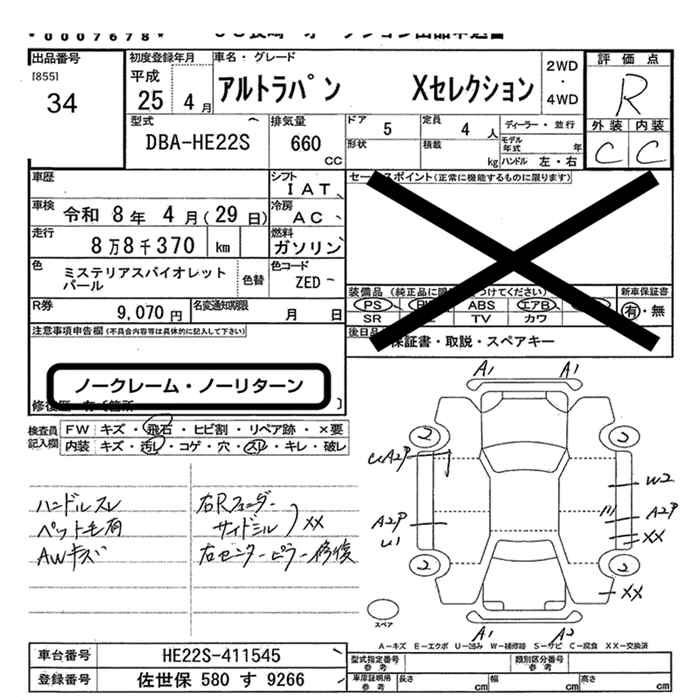 *0007678*
出品番号
[855]
34
初度登録年月
平成
25 4月
車名・グレード
アルトラパン Xセレクション
2WD
・
4WD
評価点
R
外装 内装
C C
型式
DBA-HE22S
排気量
660
CC
ドア 5
定員 4人
ディーラー・並行
形状
積載 kg
モデル年式 年
ハンドル 左・右
車歴
シフト
IAT
車検 令和 8年 4月(29日)
冷房
AC
走行
8万8千370 km
燃料
ガソリン
色
ミステリアスバイオレット
パール
色替
色コード
ZED
R券
9,070円
名変通知期限
月 日
注意事項申告欄(不具合内容等は具体的に記入して下さい)
ノークレーム・ノーリターン
スポイント(正常に機能するものに限ります)
装備品(純正品に限
つけてください)
新車保証書
PS ABS エアB
有・無
SR TV カワ
後日品
保証書・取説・スペアキー
検査員
記入欄
FW キズ・飛石・ヒビ割・リペア跡・×要
内装 キズ・汚レ・コゲ・穴・スレ・キレ・破レ
ハンドルスレ
ペット毛有
AWキズ
右Rフェンダー
サイドシル
XX
右センターピラー修復
A1 A1
2 2
A2P
W2
A2P A2P
U1 XX
2 2
XX
A1 A2
スペア
A-キズ E-エクボ U-凹み W-補修跡 S-サビ C-腐食 XX-交換済
車台番号 HE22S-411545
登録番号 佐世保 580 す 9266
型式指定番号
参考
類別区分番号
参考
車庫証明用
参考
長さ cm 幅 cm 高さ cm